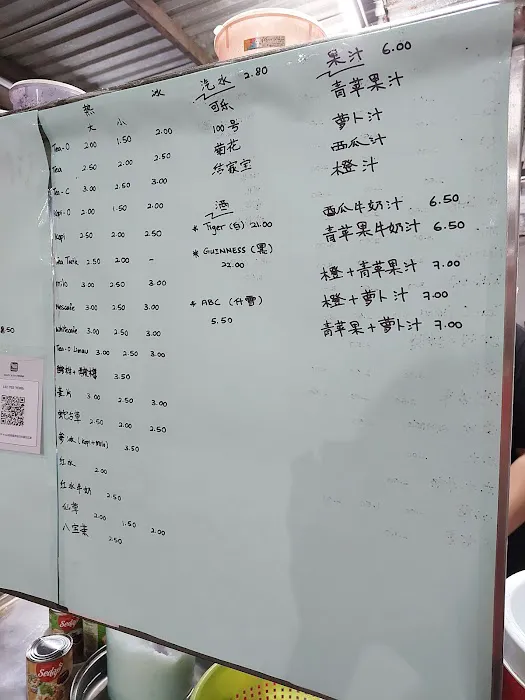 热 冰
大 小
Tea-O 2.00 1.50 2.00
Tea 2.50 2.00 2.50
Tea-C 3.00 2.50 3.00
Kopi-O 2.00 1.50 2.00
Kopi 2.50 2.00 2.50
Tea Tarik 2.50 2.00 -
Milo 3.00 2.50 3.00
Nescafe 3.00 2.50 3.00
Whitecafe 3.00 2.50 3.00
Tea-O Limau 3.00 2.50 3.00
3.50
薏米 3.00 2.50 3.00
蛇舌草 2.50 2.00 2.50
参冰 (Kopi+Milo) 3.50
红水 2.00
红水牛奶 2.50
仙草 2.00 1.50 2.00
八宝茶 2.50
汽水 2.80
可乐
100号
菊花
洁家宝
酒
* Tiger (白) 21.00
* GUINNESS (黑)
22.00
* ABC (什雪)
5.50
果汁 6.00
青苹果汁
萝卜汁
西瓜汁
橙汁
西瓜牛奶汁 6.50
青苹果牛奶汁 6.50
橙+青苹果汁 7.00
橙+萝卜汁 7.00
青苹果+萝卜汁 7.00
8.50
Seday